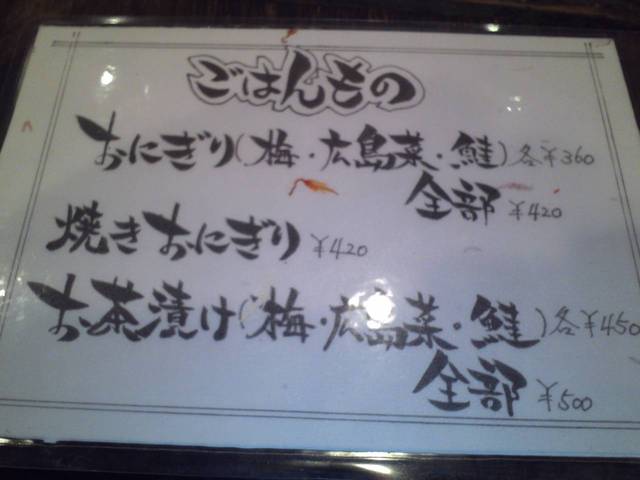 ごはんもの
おにぎり(梅・広島菜・鮭)各¥360
全部 ¥420
焼きおにぎり ¥420
お茶漬け(梅・広島菜・鮭)各¥450
全部 ¥500